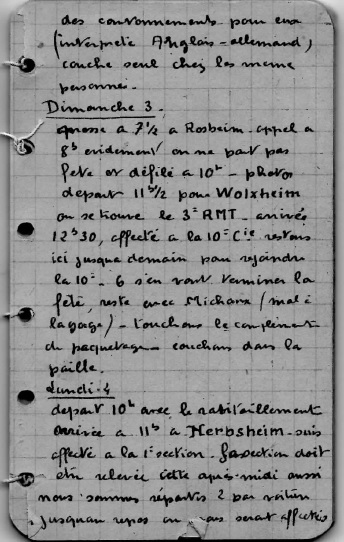 des cantonnements pour eux
(interprete Anglais-allemand)
couche seul chez les meme
personnes.
Dimanche 3.
messe a 7½ a Rosheim - appel a
8h evidement on ne part pas
fete et défilé a 10h - photos
depart 11h½ pour Wolxheim
ou se trouve le 3e RMT - arrivée
12h30, affecté a la 10e Cie restons
ici jusque demain pour rejoindre
la 10e - 6 s'en vont terminer la
fête, reste avec Michaux (mal à
la gorge) - touchons le complément
de paquetage - couchons dans la
paille.
Lundi - 4
depart 10h avec le ravitaillement
arrivée a 11h a Herbsheim - suis
affecté a la 1e section - la section doit
etre relevée cette après-midi aussi
nous sommes répartis 2 par voiture
jusqu'au repos ou serait affectés